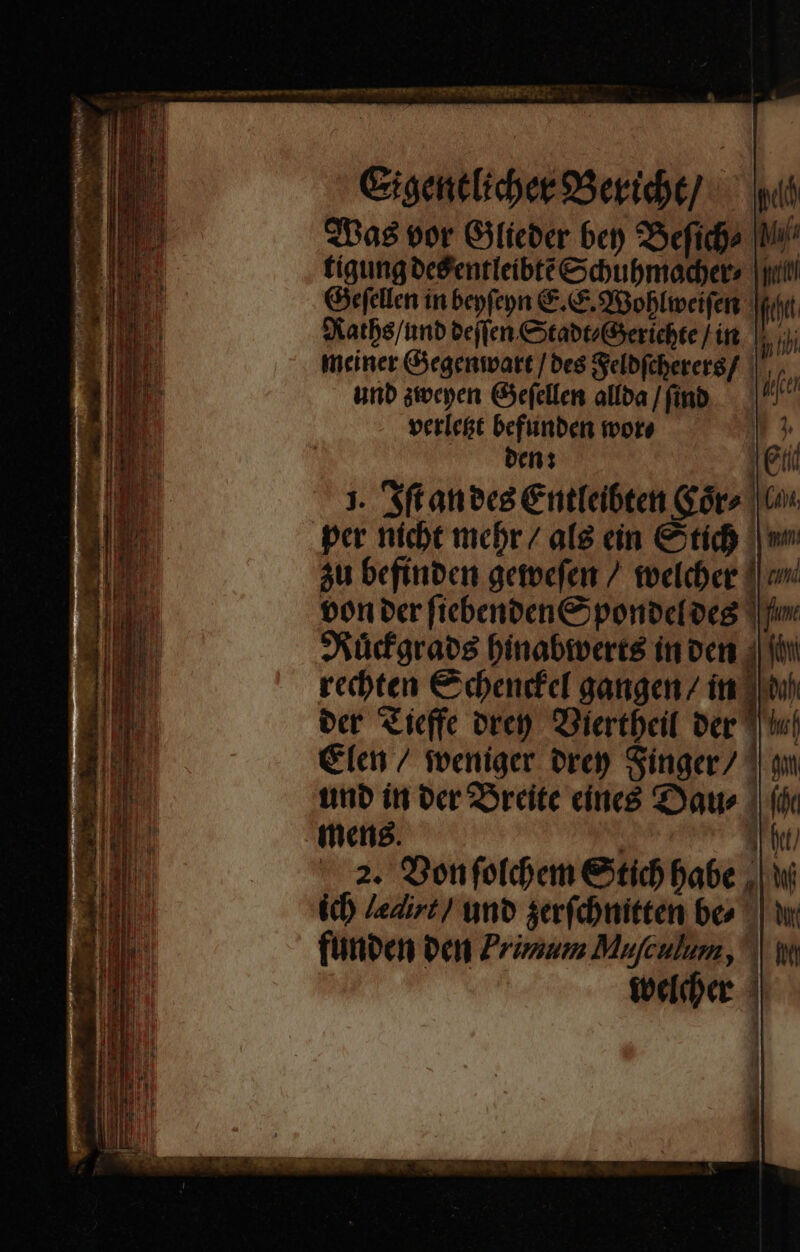 Eigentlicher Bericht/
Was vor Glieder bey Beſich⸗
tigung des entleibtē Schuhmacher⸗
Geſellen in beyſeyn E. E. Wohlweiſen
Raths/und deſſen Stadt⸗Gerichte / in
meiner Gegenwart / des Feldſcherers/
und zweyen Geſellen allda / ſind
verletzt befunden wor⸗
den:
1. Iſt an des Entleibten Coͤr⸗
per nicht mehr / als ein Stich
zu befinden geweſen / welcher
von der ſiebenden Spondel des
Ruͤckgrads hinabwerts in den
rechten Schenckel gangen / in
der Tieffe drey Viertheil der
Elen / weniger drey Finger /
und in der Breite eines Dau⸗
mens.
2. Von ſolchem Stich habe
ich lædirt / und zerſchnitten be⸗
funden den Primum Muſculum,
welcher